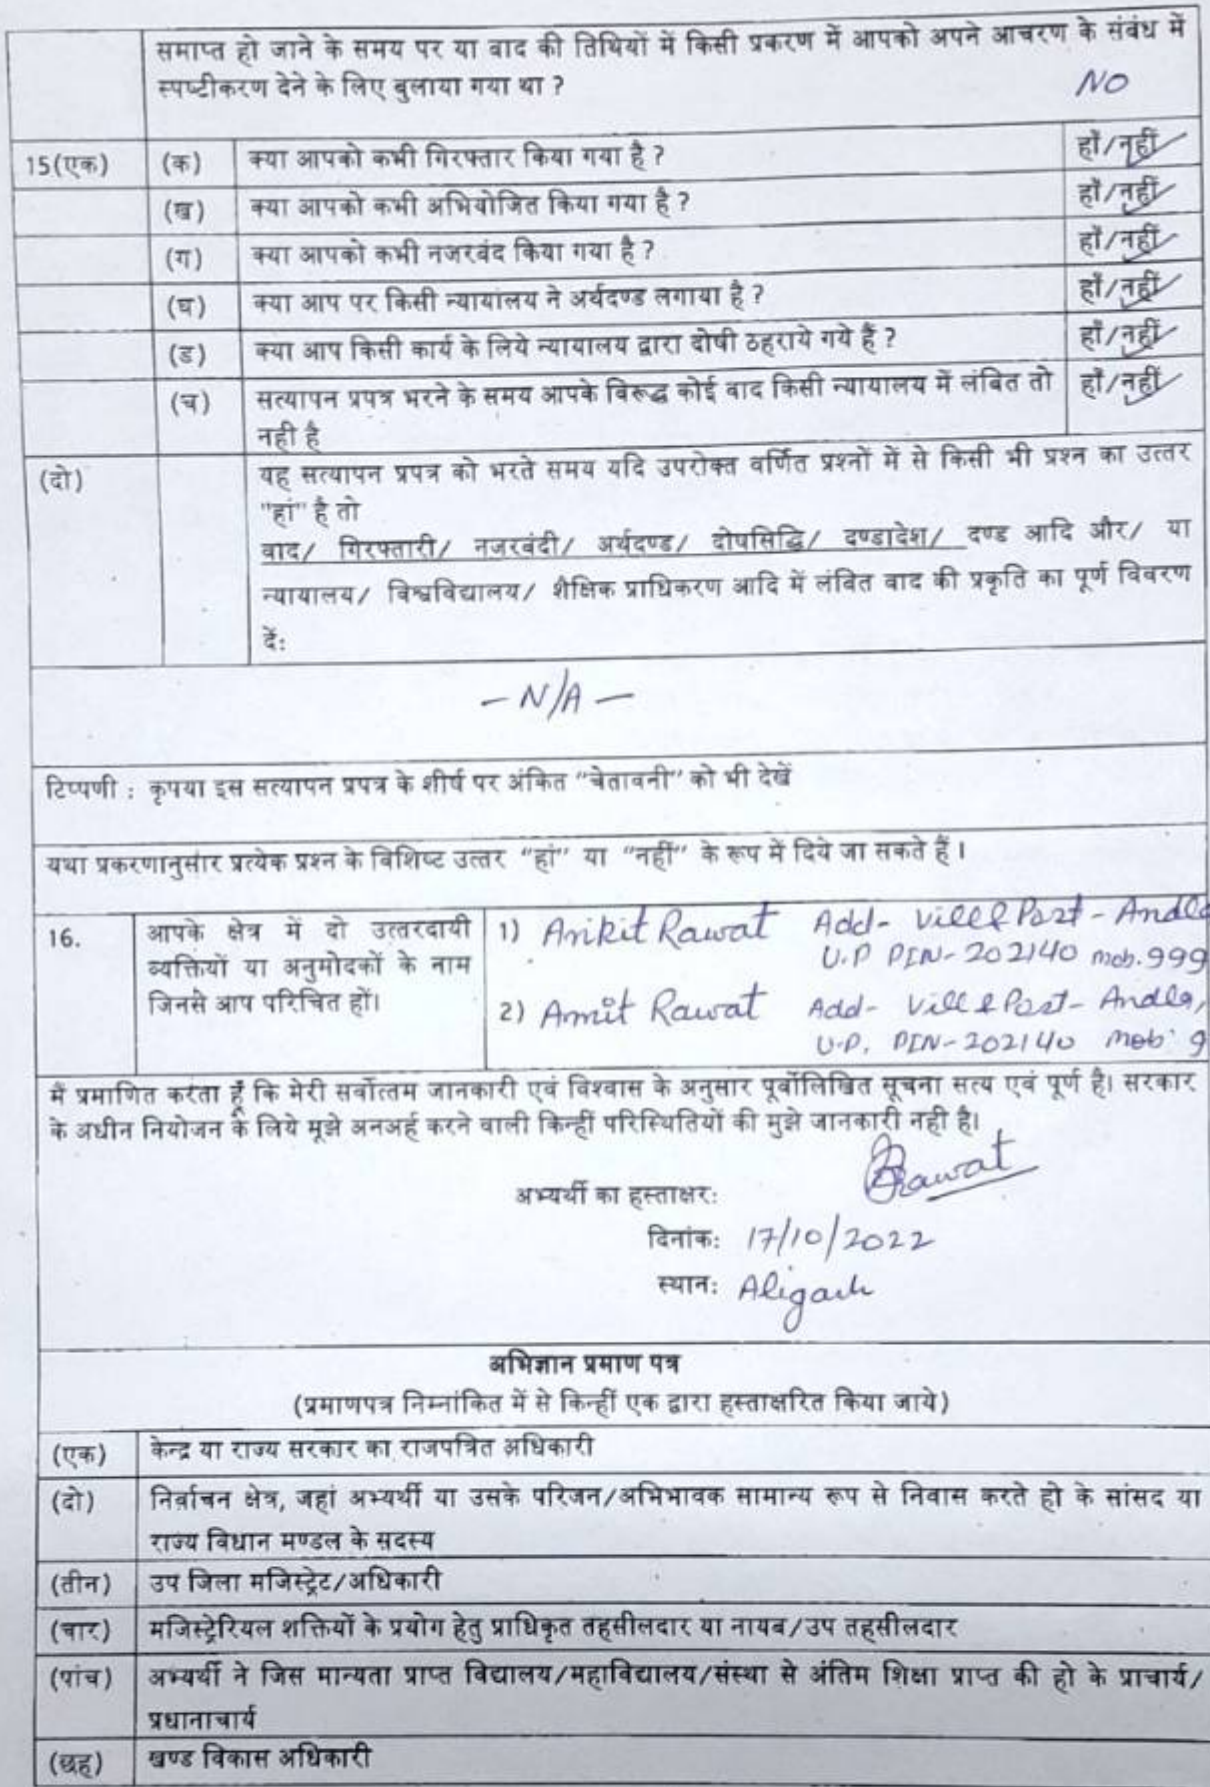 समाप्त हो जाने के समय पर या वाद की तिथियों में किसी प्रकरण में आपको अपने आचरण के संबंध में
स्पष्टीकरण देने के लिए बुलाया गया था ?
NO
15(एक) (क) क्या आपको कभी गिरफ्तार किया गया है ? हाँ/नहीं
(ख) क्या आपको कभी अभियोजित किया गया है ? हाँ/नहीं
(ग) क्या आपको कभी नजरबंद किया गया है ? हाँ/नहीं
(घ) क्या आप पर किसी न्यायालय ने अर्थदण्ड लगाया है ? हाँ/नहीं
(ड) क्या आप किसी कार्य के लिये न्यायालय द्वारा दोषी ठहराये गये हैं ? हाँ/नहीं
(च) सत्यापन प्रपत्र भरने के समय आपके विरूद्ध कोई वाद किसी न्यायालय में लंबित तो हाँ/नहीं
नही है
(दो) यह सत्यापन प्रपत्र को भरते समय यदि उपरोक्त वर्णित प्रश्नों में से किसी भी प्रश्न का उत्तर
"हां" है तो
वाद/ गिरफ्तारी/ नजरबंदी/ अर्थदण्ड/ दोषसिद्धि/ दण्डादेश/ दण्ड आदि और/ या
न्यायालय/ विश्वविद्यालय/ शैक्षिक प्राधिकरण आदि में लंबित वाद की प्रकृति का पूर्ण विवरण
दें:
- N/A -
टिप्पणी : कृपया इस सत्यापन प्रपत्र के शीर्ष पर अंकित "चेतावनी" को भी देखें
यथा प्रकरणानुसार प्रत्येक प्रश्न के विशिष्ट उत्तर "हां" या "नहीं" के रूप में दिये जा सकते हैं ।
16. आपके क्षेत्र में दो उत्तरदायी 1) Ankit Rawat Add- Vill & Post - Andla
व्यक्तियों या अनुमोदकों के नाम U.P PIN- 202140 mob. 999
जिनसे आप परिचित हों। 2) Amit Rawat Add- Vill & Post- Andla,
U.P. PIN-202140 mob: 9
मैं प्रमाणित करता हूँ कि मेरी सर्वोत्तम जानकारी एवं विश्वास के अनुसार पूर्वोलिखित सूचना सत्य एवं पूर्ण है। सरकार
के अधीन नियोजन के लिये मूझे अनअर्ह करने वाली किन्हीं परिस्थितियों की मुझे जानकारी नही है।
अभ्यर्थी का हस्ताक्षर: Rawat
दिनांक: 17/10/2022
स्थान: Aligarh
अभिज्ञान प्रमाण पत्र
(प्रमाणपत्र निम्नांकित में से किन्हीं एक द्वारा हस्ताक्षरित किया जाये)
(एक) केन्द्र या राज्य सरकार का राजपत्रित अधिकारी
(दो) निर्वाचन क्षेत्र, जहां अभ्यर्थी या उसके परिजन/अभिभावक सामान्य रूप से निवास करते हो के सांसद या
राज्य विधान मण्डल के सदस्य
(तीन) उप जिला मजिस्ट्रेट/अधिकारी
(चार) मजिस्ट्रेरियल शक्तियों के प्रयोग हेतु प्राधिकृत तहसीलदार या नायब/उप तहसीलदार
(पांच) अभ्यर्थी ने जिस मान्यता प्राप्त विद्यालय/महाविद्यालय/संस्था से अंतिम शिक्षा प्राप्त की हो के प्राचार्य/
प्रधानाचार्य
(छह) खण्ड विकास अधिकारी